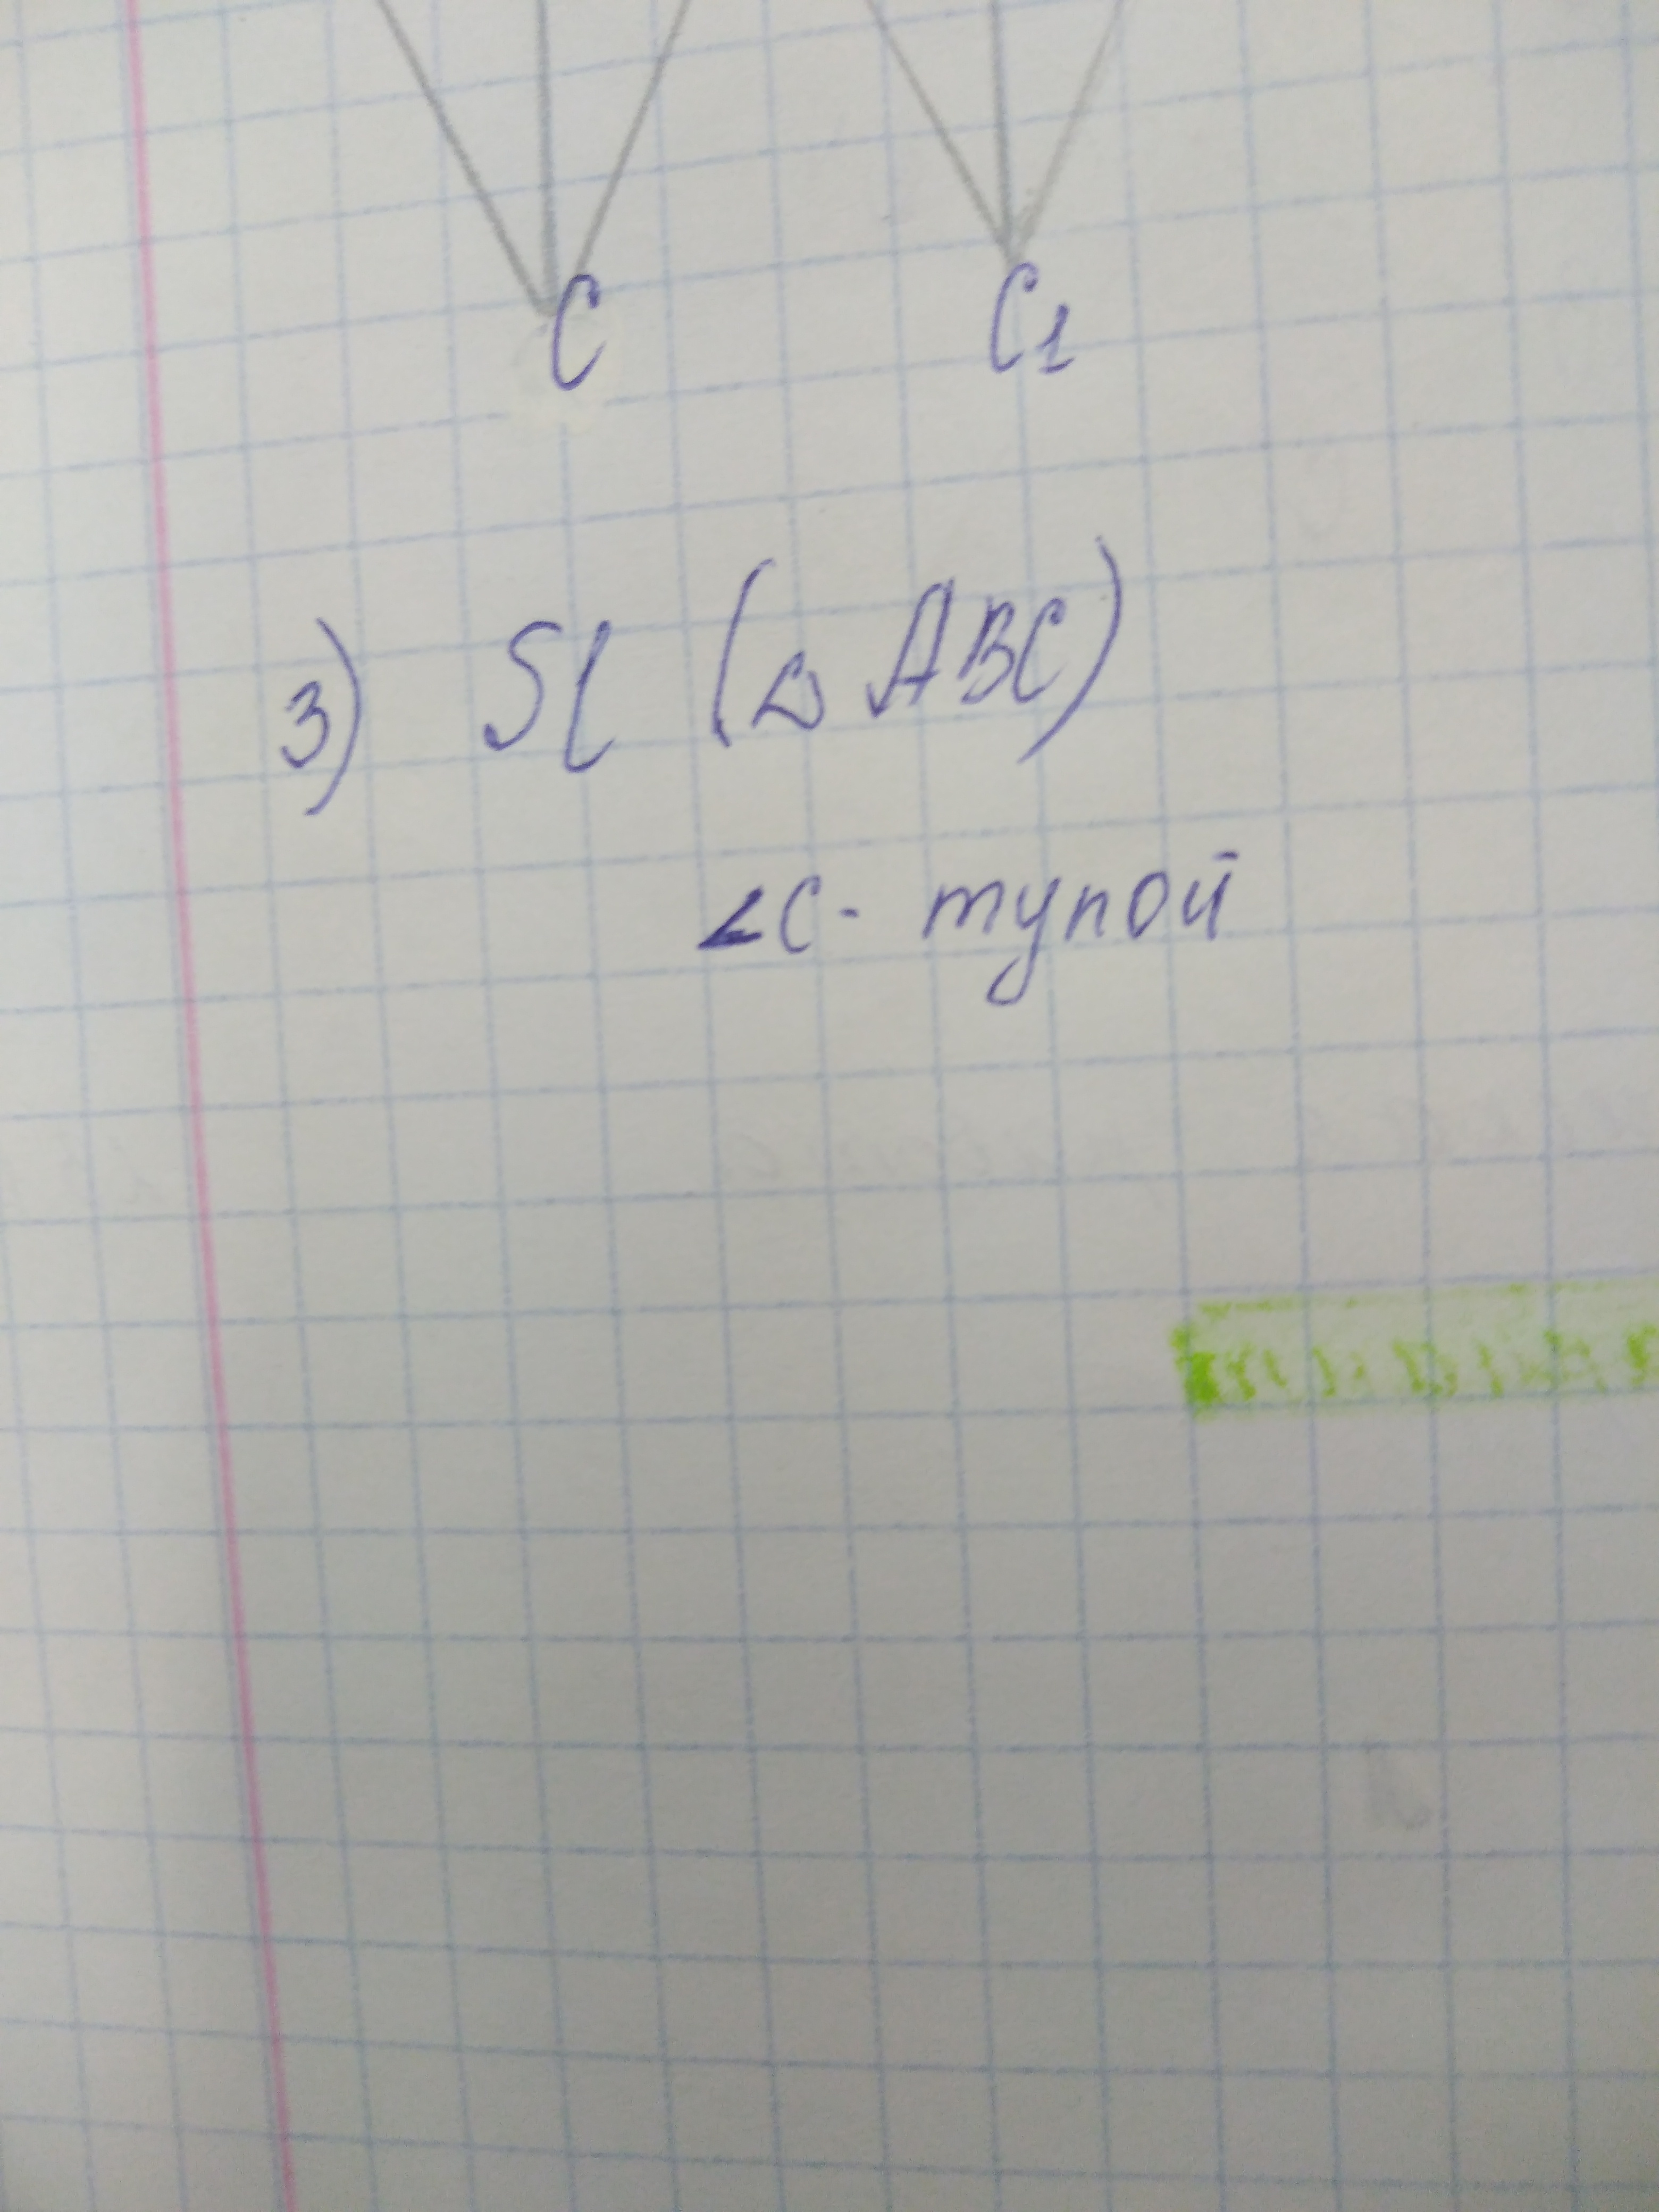 C C1
3) Sl (△ ABC)
∠C - тупой